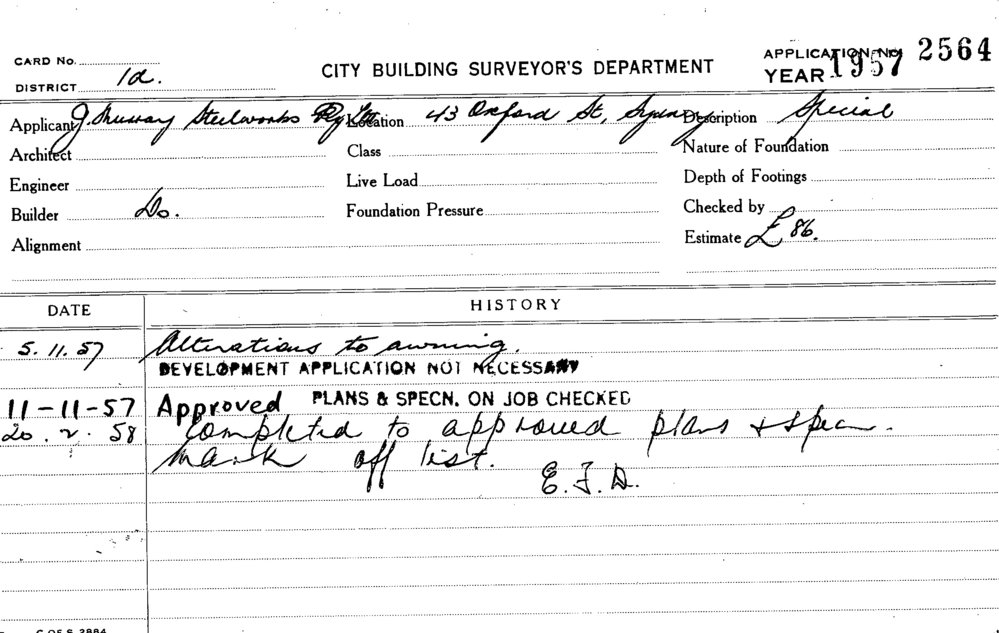 CARD No.
DISTRICT 1d.
CITY BUILDING SURVEYOR'S DEPARTMENT
APPLICATION No. 2564
YEAR 1957
Applicant J. Murray Steelworks Pty Ltd Location 43 Oxford St, Sydney Description Special
Architect Class Nature of Foundation
Engineer Live Load Depth of Footings
Builder Do. Foundation Pressure Checked by
Alignment Estimate £86.
DATE HISTORY
5.11.57 Alterations to awning.
DEVELOPMENT APPLICATION NOT NECESSARY
11-11-57 Approved PLANS & SPECN. ON JOB CHECKED
20.2.58 Completed to approved plans & specn.
Mark off list.
E.F.D.
C OF S 2884